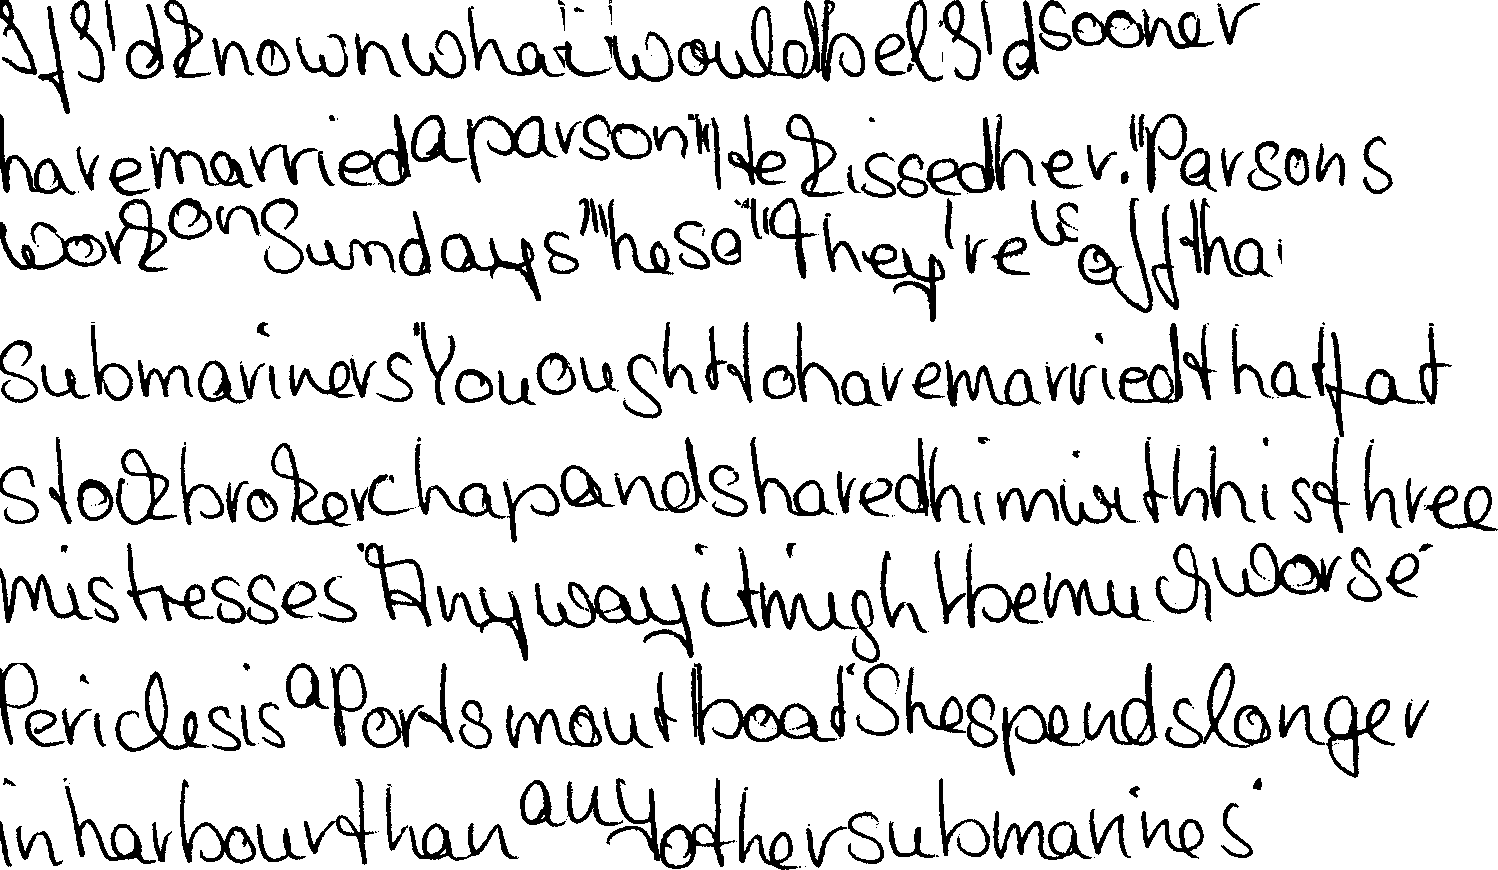 If I'd known what i would be l I'd sooner
have married a parson" "He kissed her. "Parsons
work on Sundays" "he so" "They're is off tha
submariners "You ought to have married that fat
stockbroker chap and shared him with his three
mistresses "Anyway it might be much worse
Pericles is a Portsmouth boat She spends longer
in harbour than any other submarines